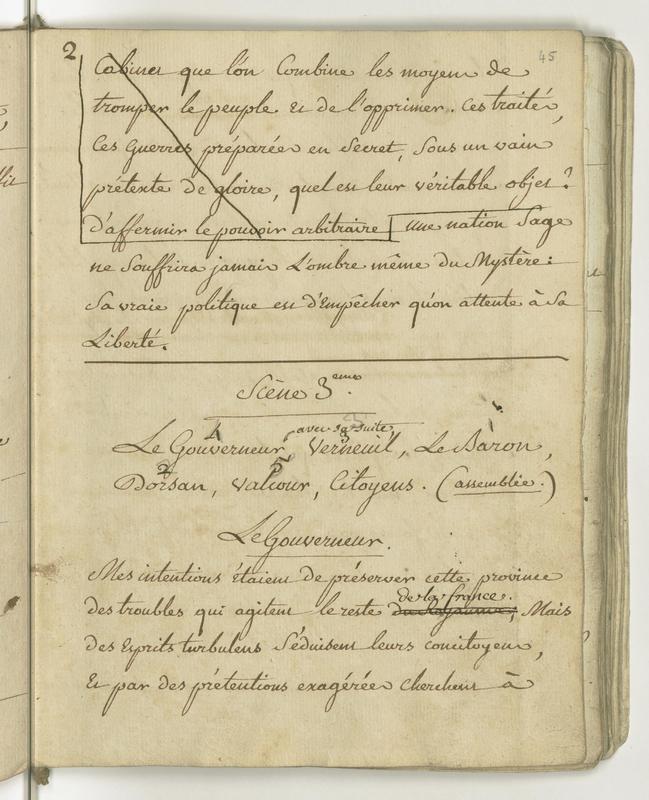 2
45
Cabinet que l'on Combine les moyens de
tromper le peuple et de l'opprimer. Ces traités,
Ces Guerres préparées en Secret, Sous un vain
prétexte de gloire, quel est leur véritable objet ?
d'affermir le pouvoir arbitraire une nation Sage
ne Souffrira jamais L'ombre même du Mystère :
Sa vraie politique est d'Empêcher qu'on attente à Sa
Liberté.
Scène 3eme.
avec sa suite,
Le Gouverneur, Verneuil, Le Baron,
Dorsan, Valcour, Citoyens. (assemblée.)
Le Gouverneur.
Mes intentions étaient de préserver cette province
de la france.
des troubles qui agitent le reste du royaume, Mais
des Esprits turbulens Séduisent leurs concitoyens,
Et par des prétentions exagérées cherchent à